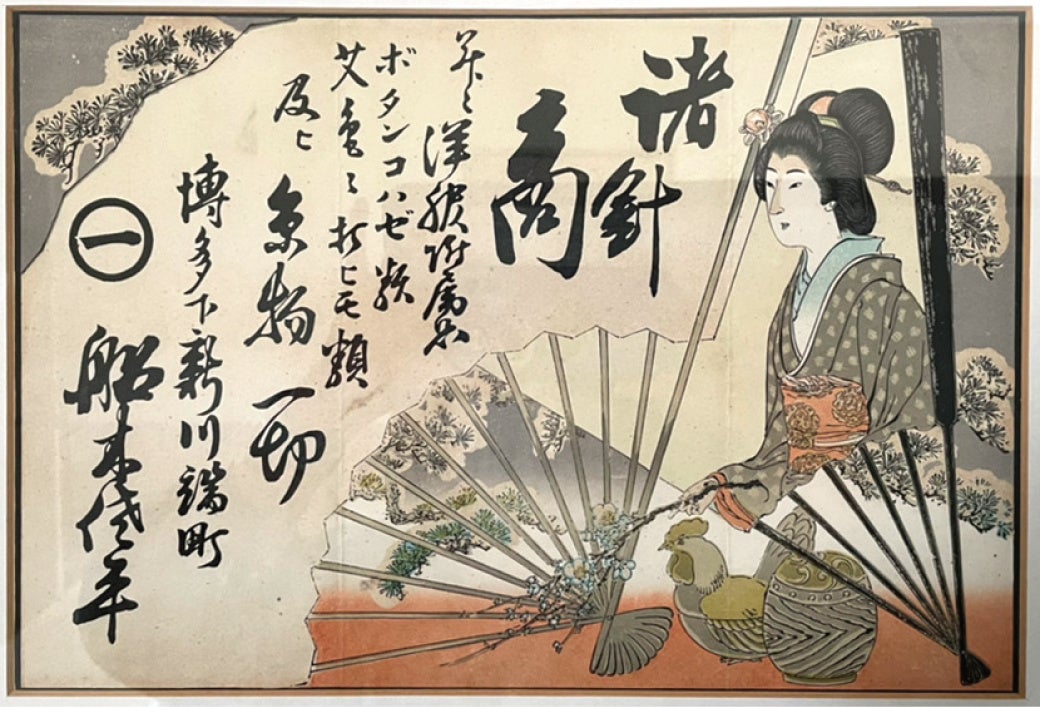 諸針商
并ニ洋服附属品
ボタンコハゼ類
打ヒモ類
及ヒ京物一切
博多下新川端町
㊀ 船木